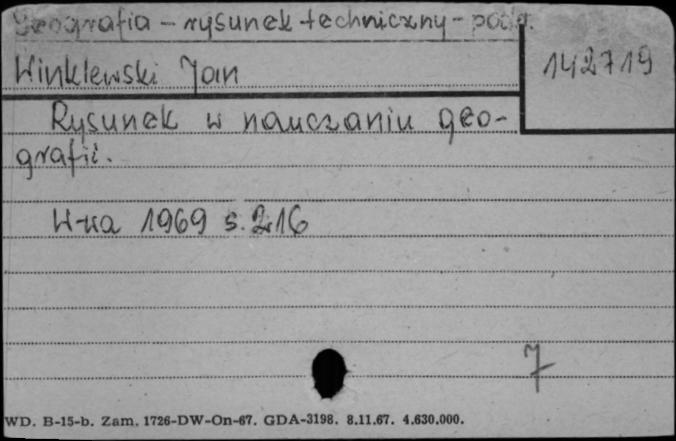 Geografia - rysunek techniczny - podr.
142719
Winklewski Jan
Rysunek w nauczaniu geo-
grafii.
W-wa 1969 s. 216
7
WD. B-15-b. Zam. 1726-DW-On-67. GDA-3198. 8.11.67. 4.630.000.